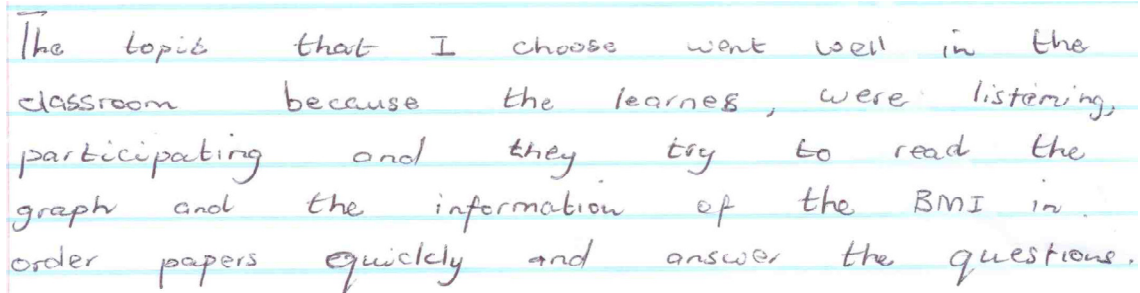 The topic that I choose went well in the
classroom because the learnes, were listening,
participating and they try to read the
graph and the information of the BMI in
order papers quickly and answer the questions.